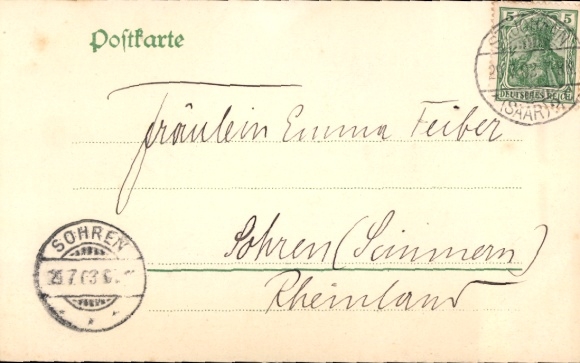 Postkarte
5 5
DEUTSCHES REICH
(SAAR)
Fräulein Emma Feiber
SOHREN
Sohren (Simmern)
Rheinland